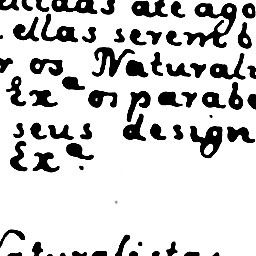 até ago
ellas serem b
r os Naturali
Exª os parabe
seus design
Exª.
Naturalistas